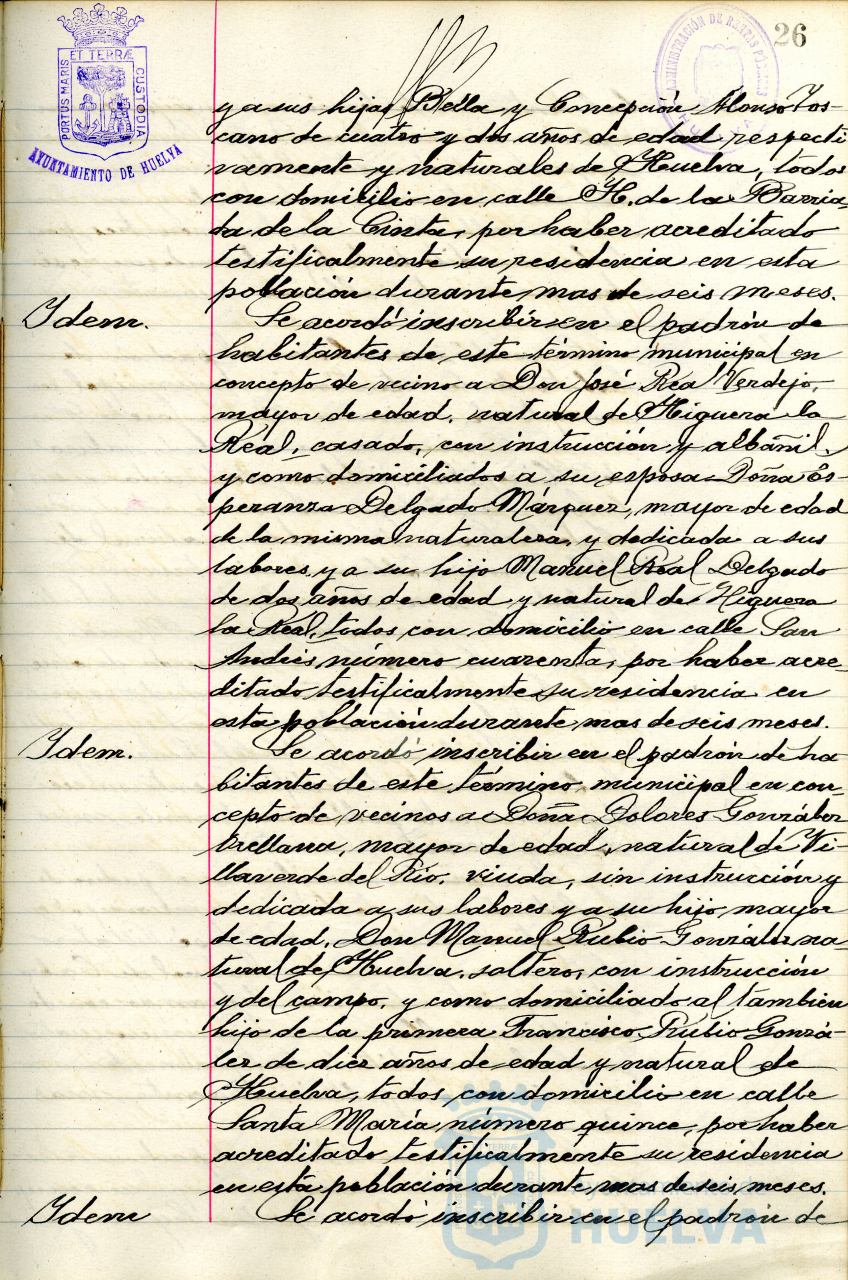 26
PORTUS MARIS ET TERRÆ CUSTODIA
AYUNTAMIENTO DE HUELVA
ADMINISTRACIÓN DE RENTAS PÚBLICAS
HUELVA
y a sus hijas Bella y Concepción Alonso Tos-
cano de cuatro y dos años de edad respecti
vamente y naturales de Huelva, todos
con domicilio en calle H. de la Barria-
da de la Cinta, por haber acreditado
testificalmente su residencia en esta
población durante mas de seis meses.
Idem.
Se acordó inscribir en el padrón de
habitantes de este término municipal en
concepto de vecino a Don José Real Verdejo,
mayor de edad, natural de Higuera la
Real, casado, con instrucción y albañil,
y como domiciliados a su esposa Doña Es-
peranza Delgado Márquez, mayor de edad
de la misma naturaleza, y dedicada a sus
labores, y a su hijo Manuel Real Delgado
de dos años de edad y natural de Higuera
la Real, todos con domicilio en calle San
Andrés número cuarenta, por haber acre-
ditado testificalmente su residencia en
esta población durante mas de seis meses.
Idem.
Se acordó inscribir en el padrón de ha
bitantes de este término municipal en con-
cepto de vecinos a Doña Dolores González
Orellana, mayor de edad, natural de Vi-
llaverde del Río, viuda, sin instrucción y
dedicada a sus labores y a su hijo mayor
de edad, Don Manuel Rubio González na-
tural de Huelva, soltero, con instrucción
y del campo, y como domiciliado al tambien
hijo de la primera Francisco Rubio Gonzá-
lez de diez años de edad y natural de
Huelva, todos con domicilio en calle
Santa María número quince, por haber
acreditado testificalmente su residencia
en esta población durante mas de seis meses.
Idem
Se acordó inscribir en el padrón de
HUELVA